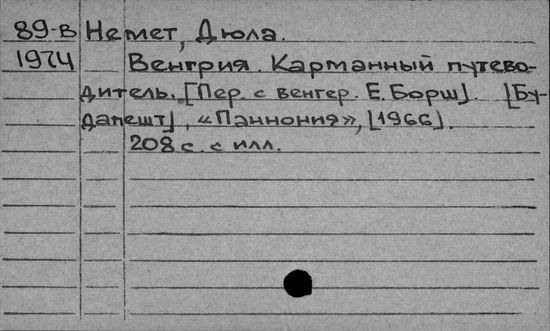 89-в Немет, Дюла.
1974 Венгрия. Карманный путево-
дитель. [Пер. с венгер. Е. Борш]. [Бу-
дапешт], «Паннония», [1966].
208 с. с илл.